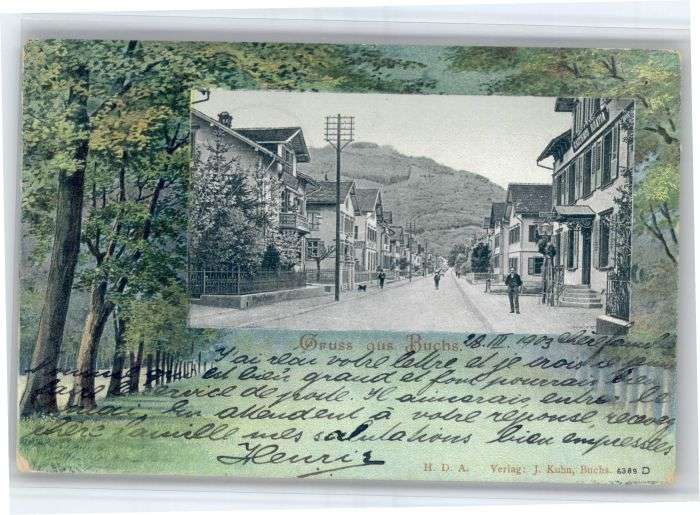 Gruss aus Buchs.
28. III. 1903 Chère famille
J'ai reçu votre lettre et je crois
est bien grand et font pourrait
service de poste. Il aimerais entre le
mai. En attendent à votre réponse, recevez
chère famille mes salutations bien empressées
Henri
H. D. A. Verlag: J. Kuhn, Buchs. 6389 D